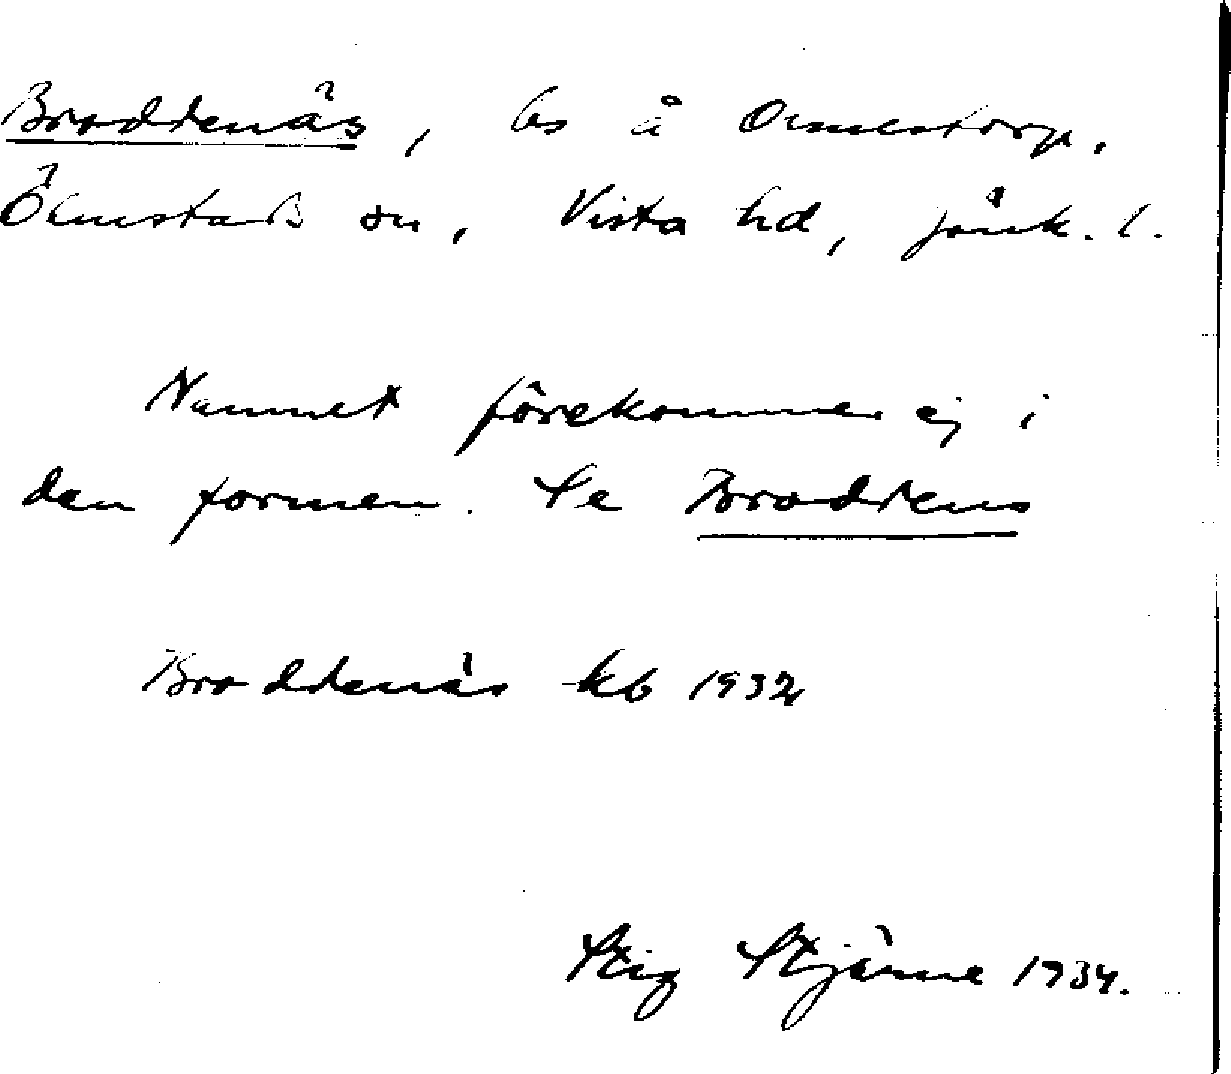 Broddenäs, ls å Ormestorp,
Ölmstads sn, Vista hd, Jönk. l.
Namnet förekommer ej i
den formen. Se Broddens
Broddenäs kb 1932
Stig Stjärne 1934.